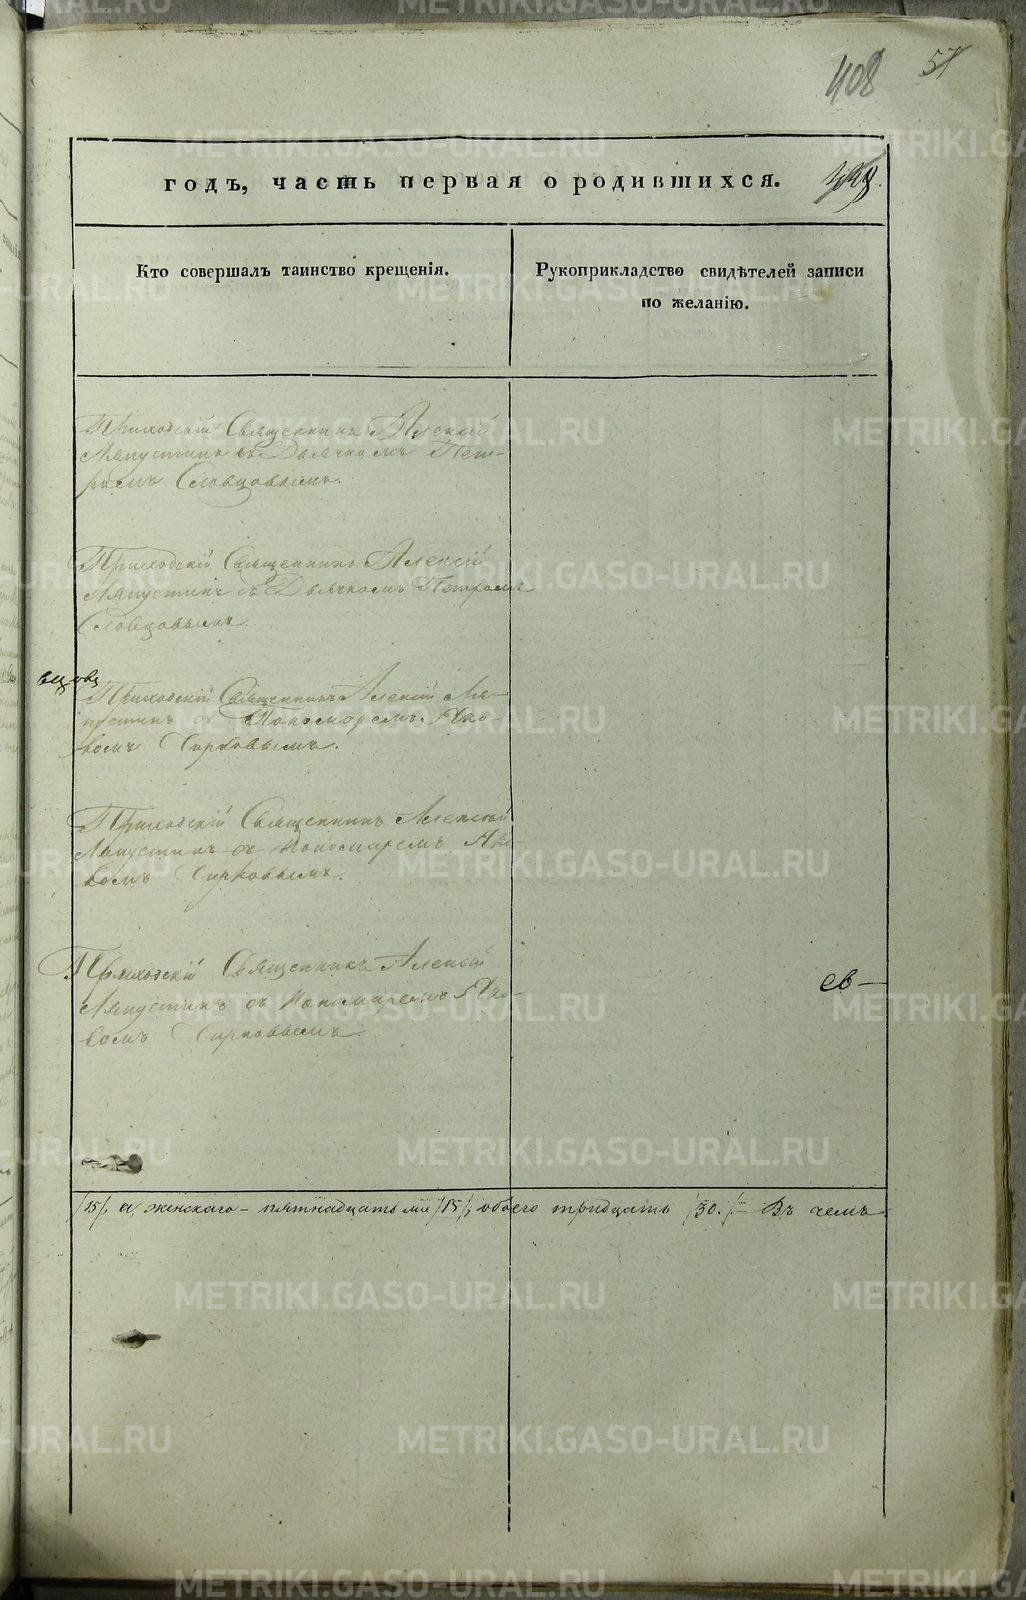 408 57
годъ, часть первая о родившихся.
Кто совершалъ таинство крещенія.
Рукоприкладство свидѣтелей записи
по желанію.
Приходскій Священникъ Алексій
Ляпустинъ съ Дьячкомъ Пет-
ромъ Словцовымъ.
Приходскій Священникъ Алексій
Ляпустинъ съ Дьячкомъ Петромъ
Словцовымъ.
Приходскій Священникъ Алексій Ля-
пустинъ съ Пономаремъ Яко-
вомъ Чирковымъ.
Приходскій Священникъ Алексій
Ляпустинъ съ Пономаремъ Яко
вомъ Чирковымъ.
Приходскій Священникъ Алексій
Ляпустинъ съ Пономаремъ Яко-
вомъ Чирковымъ.
св—
/15/. а женскаго – пятнадцать /15/, обоего тридцать /30./ – Въ чемъ
METRIKI.GASO-URAL.RU